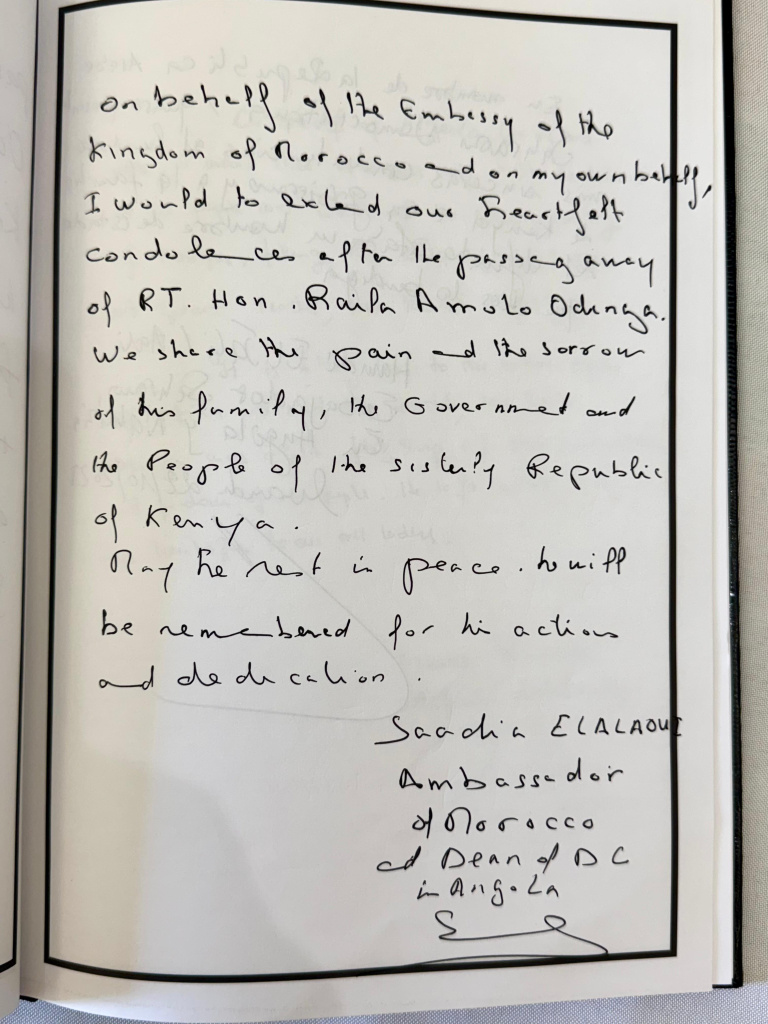 on behalf of the Embassy of the
Kingdom of Morocco and on my own behalf,
I would to extend our heartfelt
condolences after the passing away
of RT. Hon. Raila Amolo Odinga.
We share the pain and the sorrow
of his family, the Government and
the People of the sisterly Republic
of Kenya.
May he rest in peace. he will
be remembered for his actions
and dedication.
Saadia ELALAOUI
Ambassador
of Morocco
and Dean of DC
in Angola